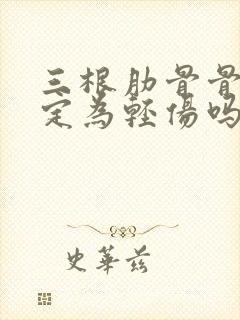 三根肋骨骨
定为轻伤吗
史华兹